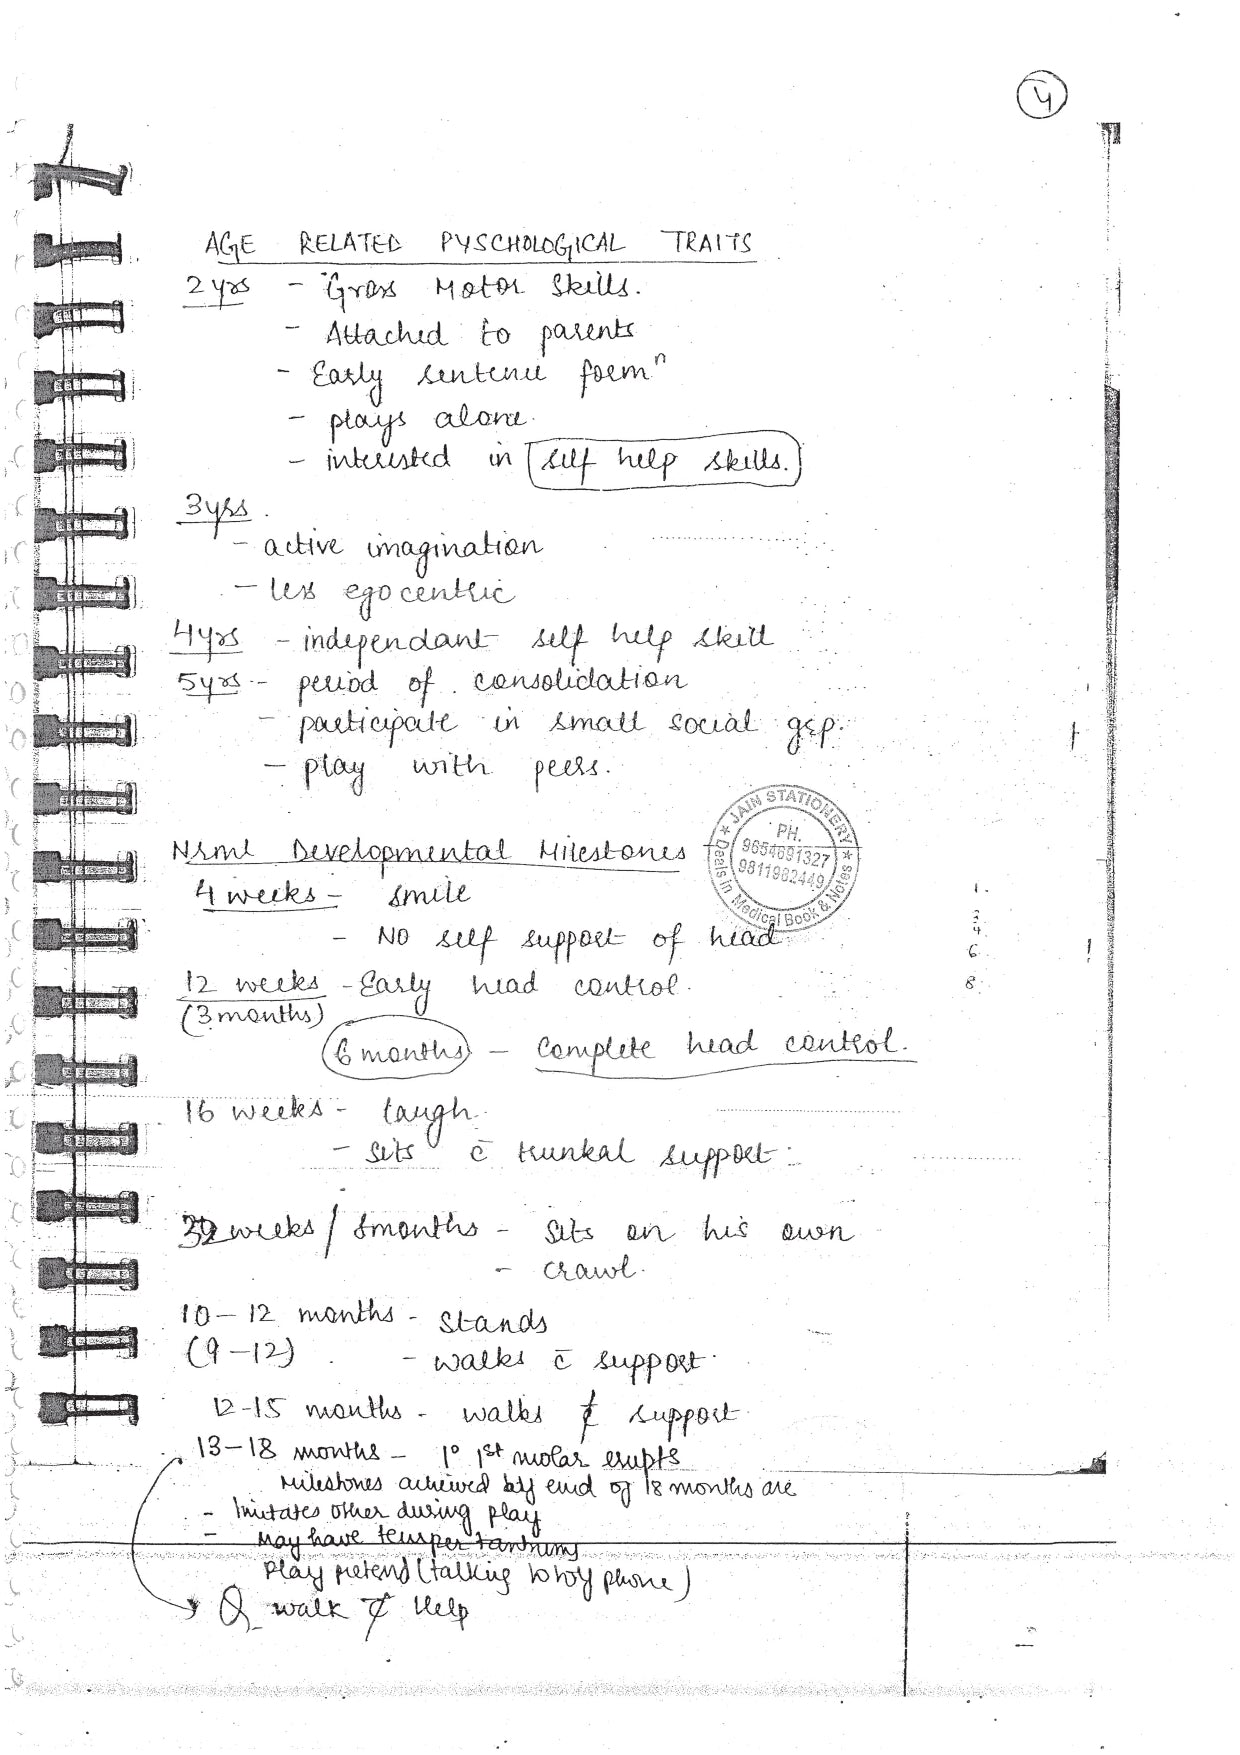 4
AGE RELATED PYSCHOLOGICAL TRAITS
2yrs - Gross Motor Skills.
- Attached to parents
- Early sentence formⁿ
- plays alone.
- interested in self help skills.
3yrs.
- active imagination
- less egocentric
4yrs - independant self help skill
5yrs - period of consolidation
- participate in small social grp.
- play with peers.
★ JAIN STATIONERY ★
PH.
9654691327
9811982449
Deals in Medical Book & Notes
Nrml Developmental Milestones
4 weeks - smile
- NO self support of head.
12 weeks - Early head control.
(3 months)
6 months - complete head control.
16 weeks - laugh.
- sits c̄ trunkal support.
32 weeks / 8months - sits on his own
- crawl.
10-12 months - stands
(9-12) - walks c̄ support.
12-15 months - walks c̸ support
13-18 months - 1° 1st molar erupts
Milestones achieved by end of 18 months are
- Imitates other during play
- May have temper tantrums
Play pretend (talking to toy phone)
Q walk c̸ Help
1.
3.
4.
6.
8.